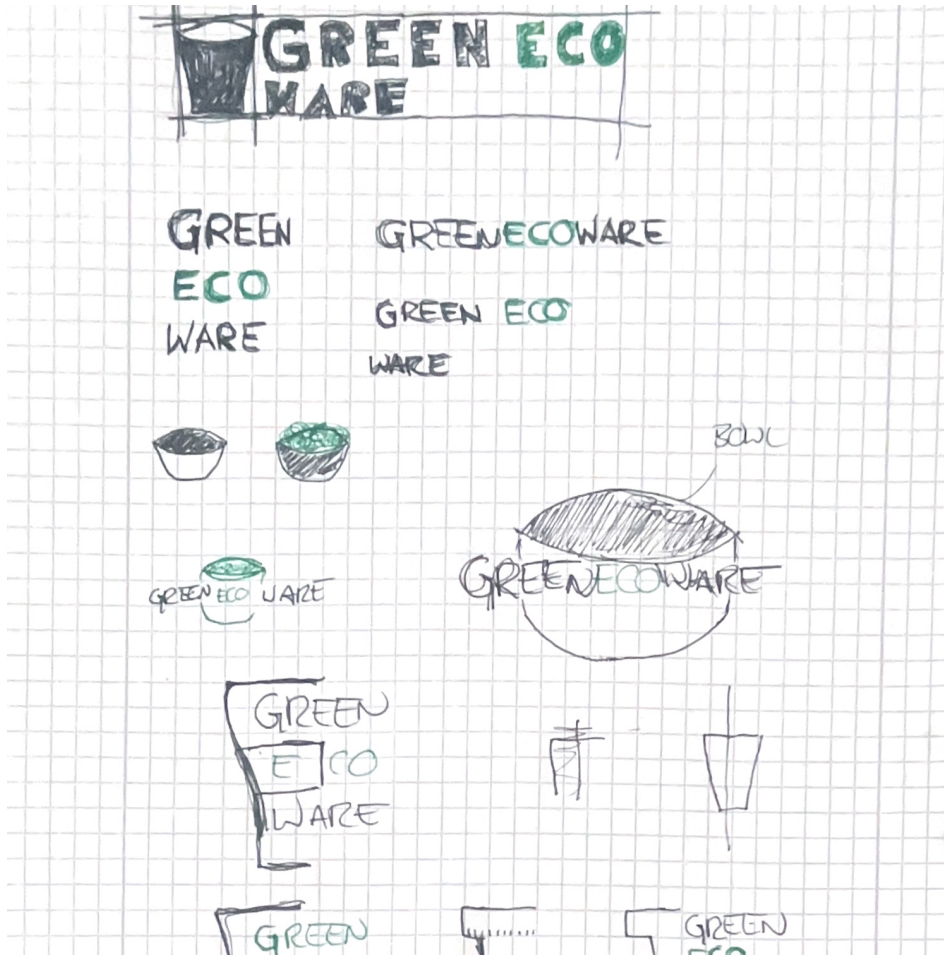 GREEN ECO
WARE
GREEN
ECO
WARE
GREENECOWARE
GREEN ECO
WARE
BOWL
GREENECOWARE
GREEN ECO WARE
GREEN
ECO
WARE
GREEN
GREEN
ECO